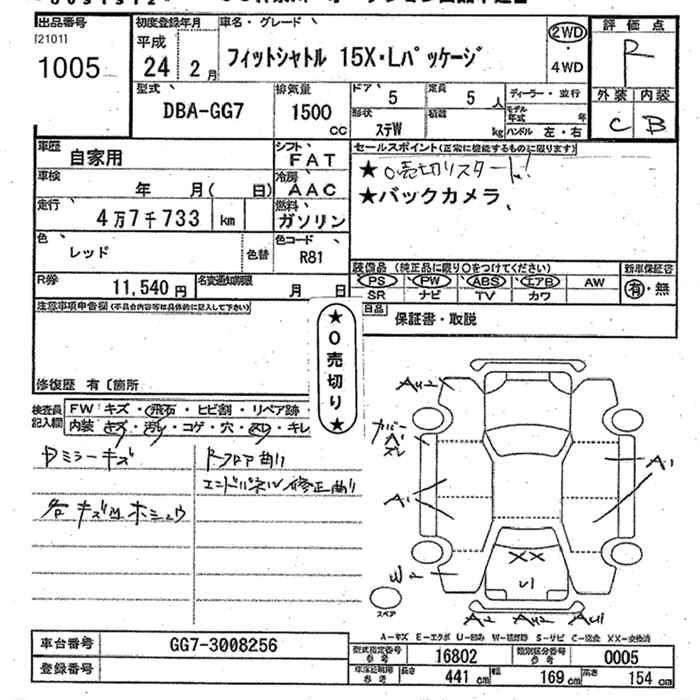 出品番号
[2101]
1005
初度登録年月
平成
24 2月
車名・グレード
フィットシャトル 15X・Lパッケージ
2WD
・
4WD
評価点
R
外装 内装
C B
型式
DBA-GG7
排気量
1500
CC
ドア 5
定員 5 人
形状 ステW
積載 kg
ディーラー・並行
モデル年式 年
ハンドル 左・右
車歴
自家用
シフト
FAT
車検
年 月( 日)
冷房
AAC
走行
4万7千733 km
燃料
ガソリン
色
レッド
色替
色コード
R81
R券
11,540円
名変通知期限
月 日
セールスポイント(正常に機能するものに限ります)
★0売切りスタート!
★バックカメラ
装備品 (純正品に限り○をつけてください)
PS PW ABS エアB AW
SR ナビ TV カワ
新車保証書
有・無
保証書・取説
注意事項申告欄(不具合内容等は具体的に記入して下さい)
修復歴 有〔箇所
★0売切り★
検査員
記入欄
FW キズ・飛石・ヒビ割・リペア跡
内装 キズ・汚れ・コゲ・穴・スレ・キレ
ミラーキズ
Rフロア曲り
エンドパネル修正曲り
各キズ凹ホシュウ
AU2
カバー
A1
スレ
A1
A1
W2
XX
U1
A2 AU2 AU1
スペア
A-キズ E-エクボ U-凹み W-補修跡 S-サビ C-腐食 XX-交換済
車台番号
GG7-3008256
登録番号
型式指定番号
参考
16802
類別区分番号
参考
0005
車庫証明用
参考
長さ 441 cm
幅 169 cm
高さ 154 cm